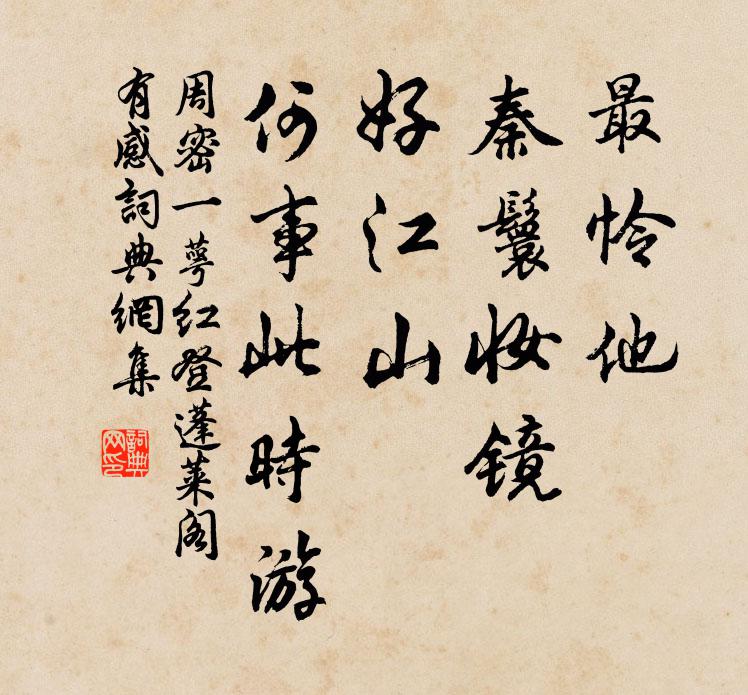 最怜他
秦鬟妆镜
好江山
何事此時游
周密一萼红登蓬莱阁
有感詞典網集
詞典网印